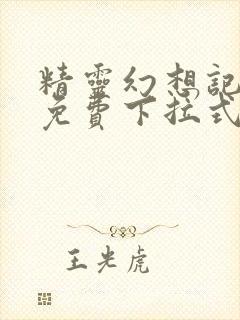 精靈幻想記
免費下拉式
王光虎